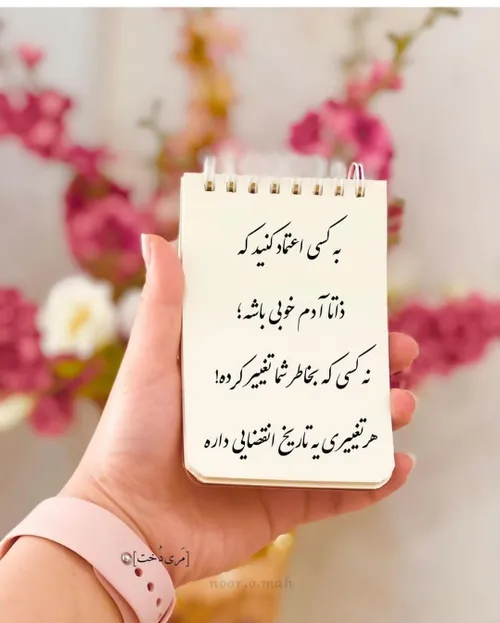 به کسی اعتماد کنید که
ذاتا آدم خوبی باشه؛
نه کسی که بخاطر شما تغییر کرده!
هر تغییری یه تاریخ انقضایی داره
[مَری دُخت]
noor.o.mah